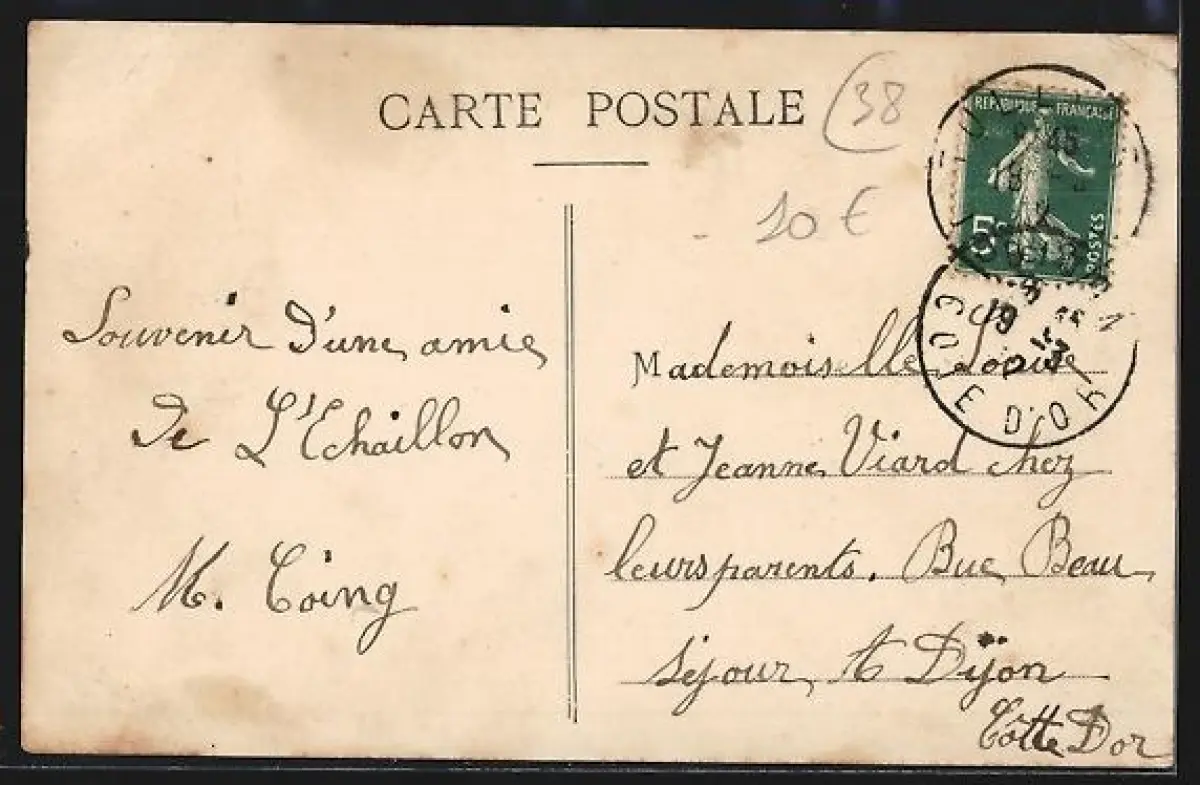 CARTE POSTALE
38
10 €
REPUBLIQUE FRANÇAISE
5c
POSTES
COTE D'OR
Souvenir D'une amie
De L'Echaillon
M. Coing
Mademoiselle Louise
et Jeanne Viard chez
leurs parents. Bue Beau
séjour, à Dijon
Côtte D'or